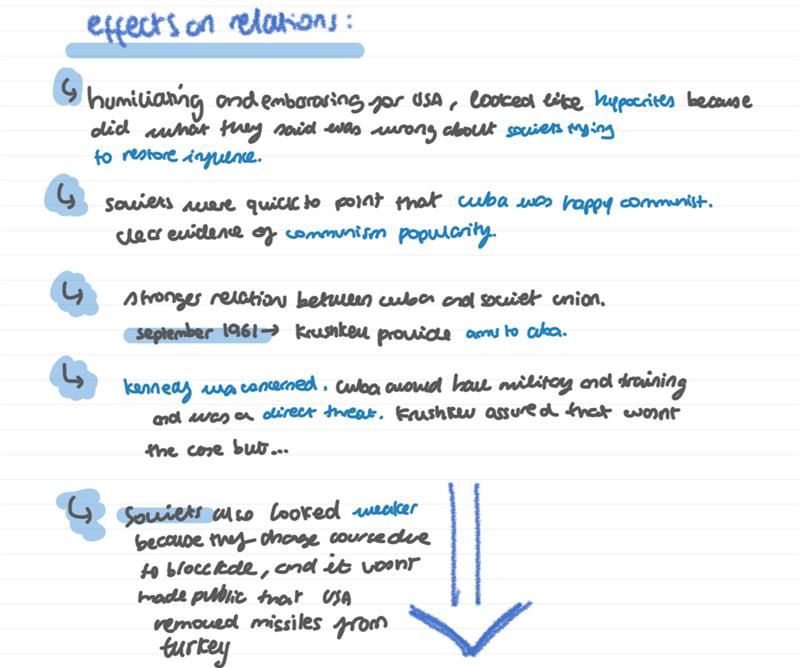 effects on relations:
↳ humiliating and embarasing for USA, looked like hypocrites because
did what they said was wrong about soviets trying
to restore infuence.
↳ soviets were quick to point that cuba was happy communist.
clear evidence of communism popularity.
↳ stronger relation between cuba and soviet union.
september 1961 → Krushkev provide arms to cuba.
↳ kennedy was concerned. cuba would have military and training
and was a direct threat. Krushkev assured that wasnt
the case but...
↳ Soviets also looked weaker
because they change course due
to blockade, and it wasnt
made public that USA
removed missiles from
turkey